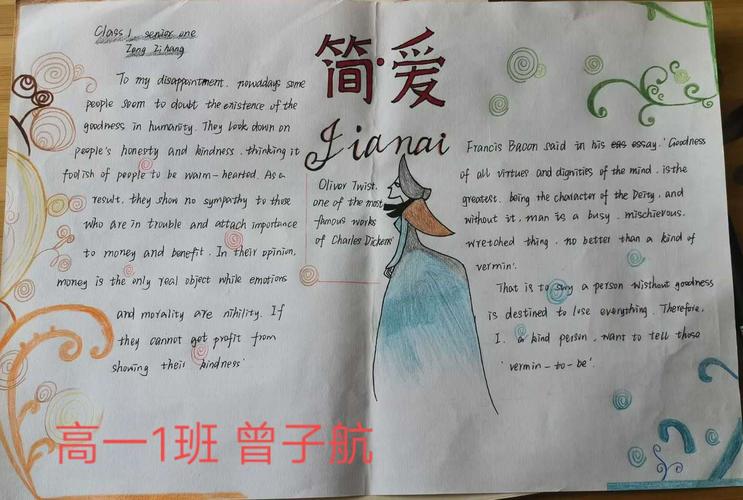 Class 1 senior one
Zeng Zihang
简·爱
Jianai
To my disappointment. nowadays some
people seem to doubt the existence of the
goodness in humanity. They look down on
people's honesty and kindness. thinking it
foolish of people to be warm-hearted. As a
result, they show no sympathy to those
who are in trouble and attach importance
to money and benefit. In their opinion,
money is the only real object while emotions
and morality are nihility. If
they cannot get profit from
showing their kindness'
Oliver Twist.
one of the most
famous works
of Charles Dickens'
Francis Bacon said in his eas essay.' Goodness
of all virtues and dignities of the mind. is the
greatest. being the character of the Deity, and
without it, man is a busy. mischievous.
wretched thing. no better than a kind of
vermin'.
That is to say a person wisthout goodness
is destined to lose everything. Therefore,
I. a kind person, want to tell those
'vermin-to-be'.
高一1班 曾子航